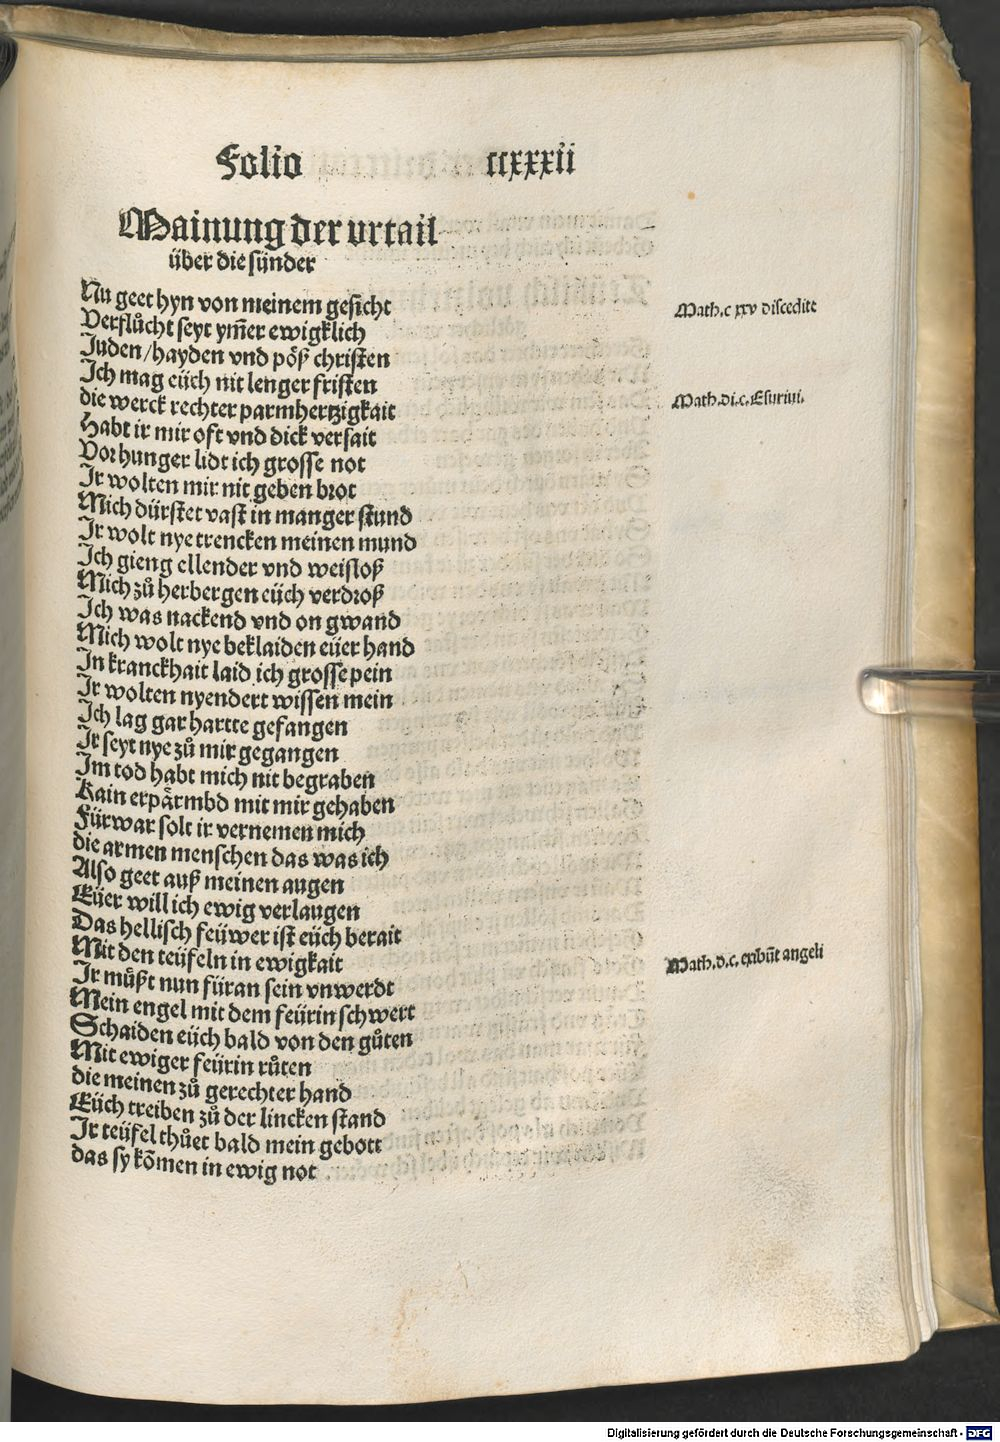 Folio ccxxxii
Mainung der vrtail
über die sünder
Nu geet hyn von meinem gesicht
Math. c xxv discedite
Verflůcht seyt ym̃er ewigklich
Juden/hayden vnd pöß christen
Ich mag eüch nit lenger fristen
die werck rechter parmhertzigkait
Math. di. c. Esuriui.
Habt ir mir oft vnd dick versait
Vor hunger lidt ich grosse not
Ir wolten mir nit geben brot
Mich dürstet vast in manger stund
Ir wolt nye trencken meinen mund
Ich gieng ellender vnd weisloß
Mich zů herbergen eüch verdroß
Ich was nackend vnd on gwand
Mich wolt nye beklaiden eüer hand
In kranckhait laid ich grosse pein
Ir wolten nyendert wissen mein
Ich lag gar hartte gefangen
Ir seyt nye zů mir gegangen
Im tod habt mich nit begraben
Kain erpärmbd mit mir gehaben
Fürwar solt ir vernemen mich
die armen menschen das was ich
Also geet auß meinen augen
Eüer will ich ewig verlaugen
Das hellisch feüwer ist eüch berait
Mit den teüfeln in ewigkait
Math. d. c. exibūt angeli
Ir můßt nun füran sein vnwerdt
Mein engel mit dem feürin schwert
Schaiden eüch bald von den gůten
Mit ewiger feürin růten
die meinen zů gerechter hand
Eüch treiben zů der lincken stand
Ir teüfel thůet bald mein gebott
das sy kõmen in ewig not
Digitalisierung gefördert durch die Deutsche Forschungsgemeinschaft - DFG